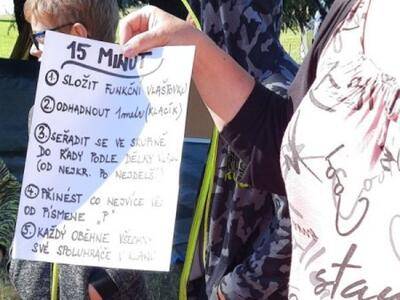 15 MINUT
① SLOŽIT FUNKČNÍ VLAŠTOVKU
② ODHADNOUT 1 metr (KLACÍK)
③ SEŘADIT SE VE SKUPINĚ
DO ŘADY PODLE DÉLKY
(OD NEJKR. PO NEJDELŠÍ
④ PŘINÉST CO NEJVÍCE
OD PÍSMENE „P"
⑤ KAŽDÝ OBĚHNE VŠECHNY
SVÉ SPOLUHRÁČE V